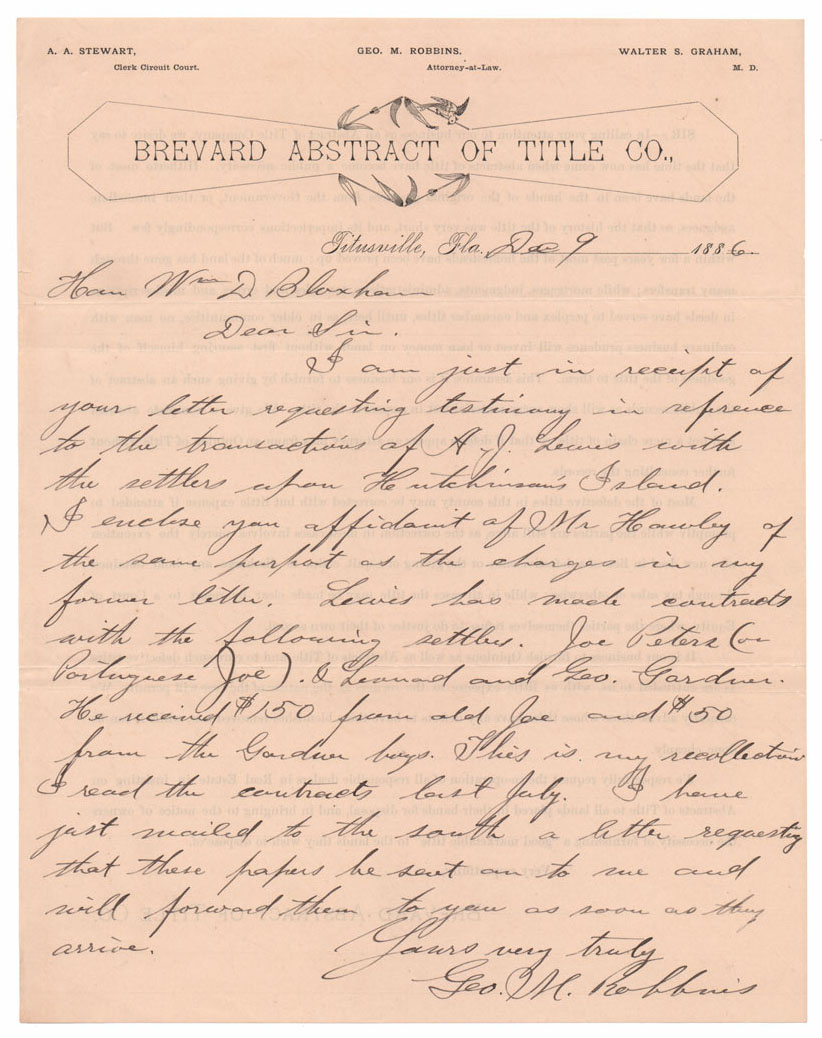 A. A. STEWART, GEO. M. ROBBINS. WALTER S. GRAHAM,
Clerk Circuit Court. Attorney-at-Law. M. D.
BREVARD ABSTRACT OF TITLE CO.,
Titusville, Fla. Dec 9 1886.
Hon Wm D. Bloxham
Dear Sir.
I am just in receipt of
your letter requesting testimony in reference
to the transactions of A. J. Lewis with
the settlers upon Hutchinson's Island.
I enclose you affidavit of Mr Hawley of
the same purport as the charges in my
former letter. Lewis has made contracts
with the following settlers. Joe Peters (or
Portuguese Joe). & Leonard and Geo. Gardner.
He received $150 from old Joe and $50
from the Gardner boys. This is my recollection
I read the contracts last July. I have
just mailed to the south a letter requesting
that these papers be sent on to me and
will forward them to you as soon as they
arrive. Yours very truly
Geo. M. Robbins